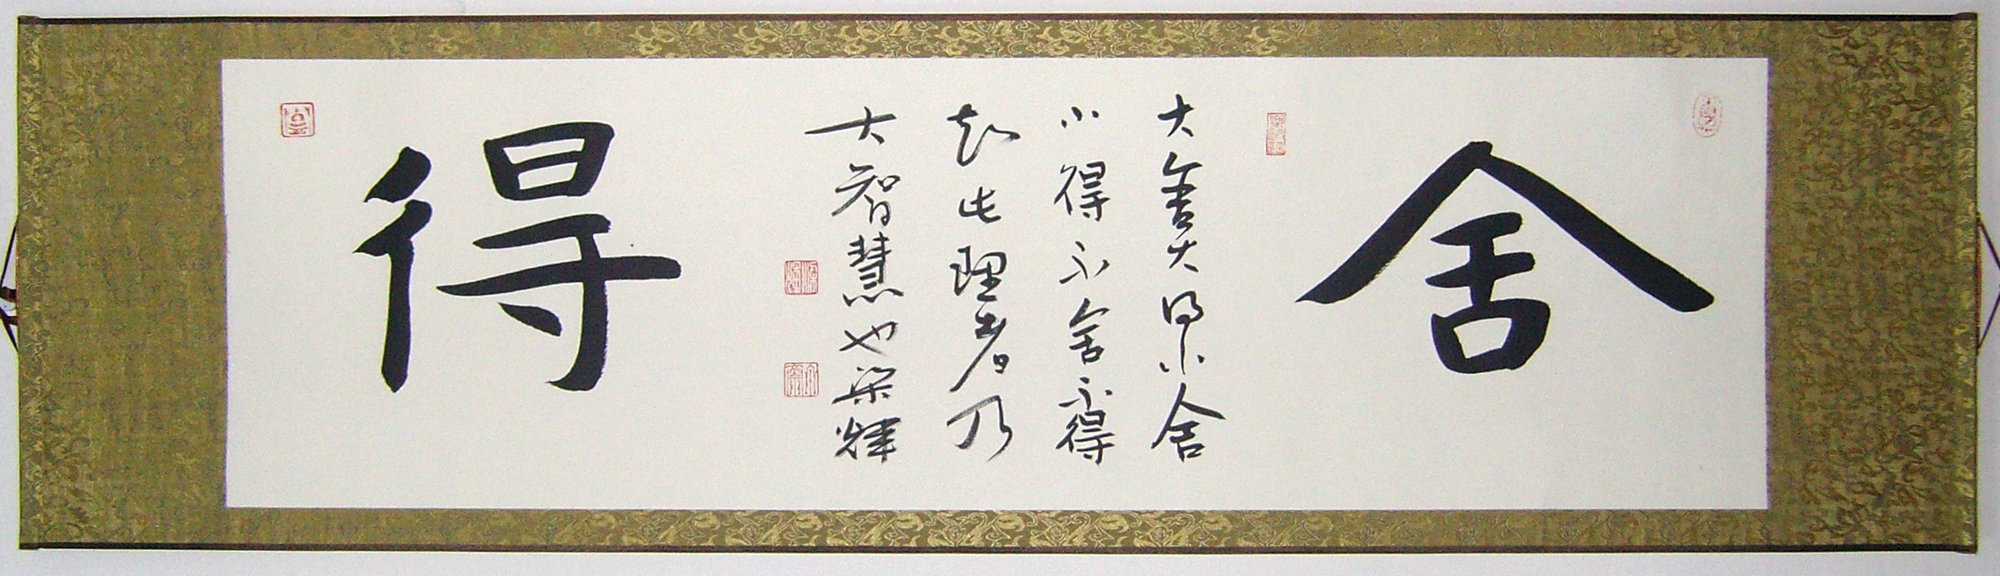 舍
大舍大得小舍
小得不舍不得
知此理者乃
大智慧也梁輝
得